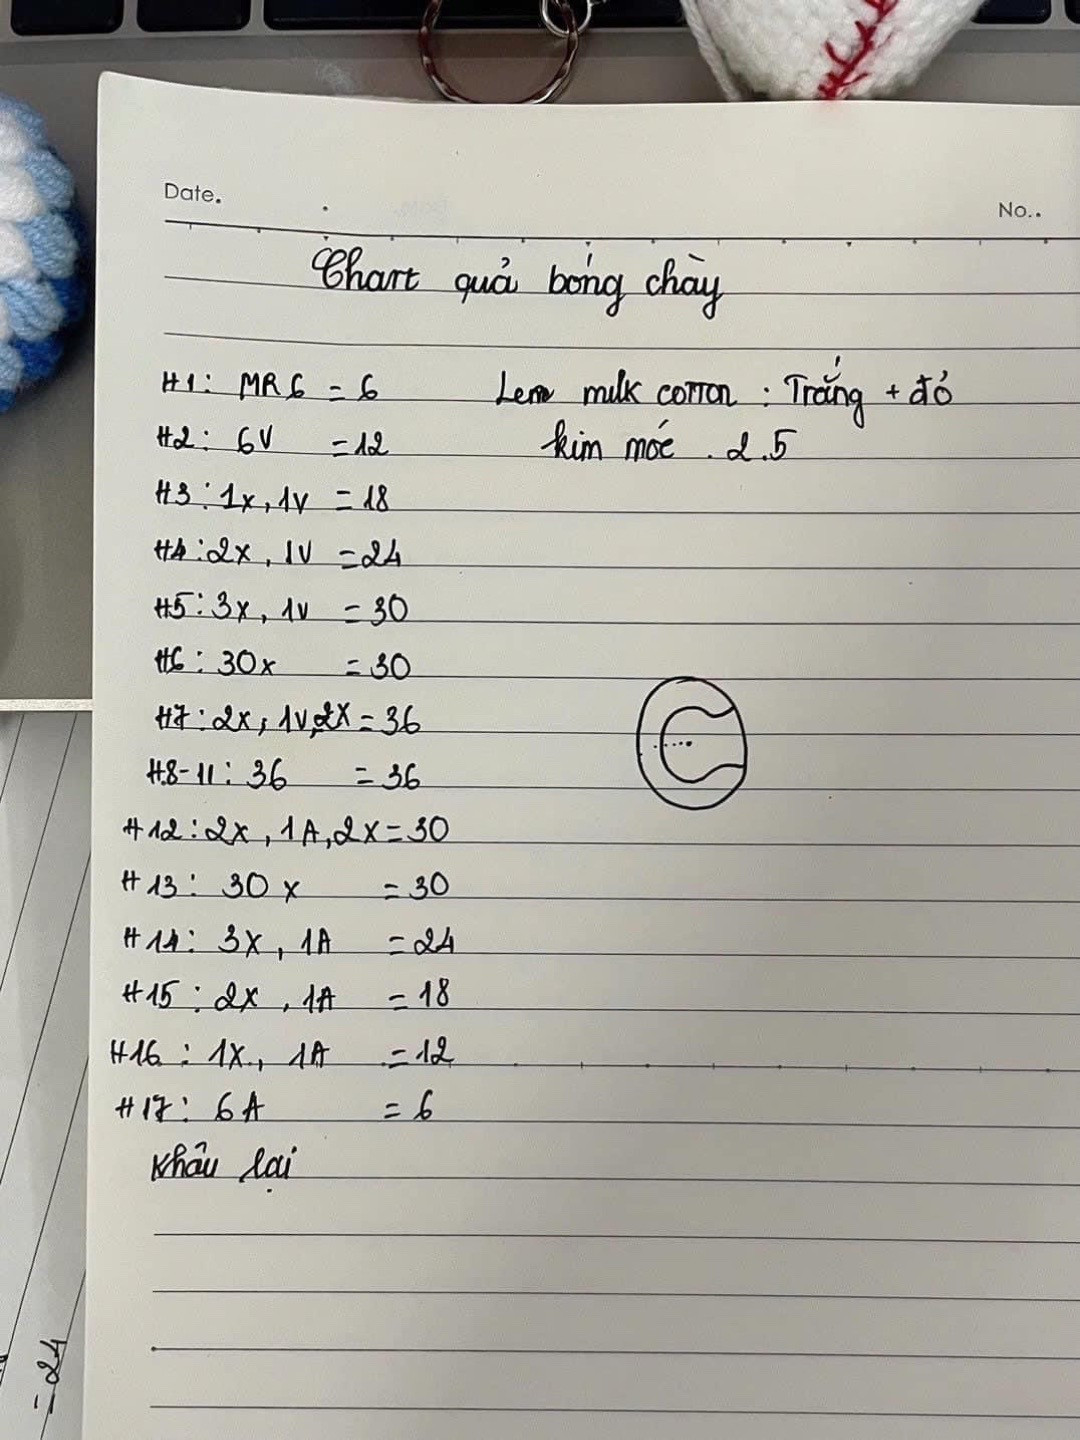 Date.
No..
Chart quả bóng chày
H1: MR6 = 6
Len milk cotton : Trắng + đỏ
H2: 6V = 12
kim móc . 2.5
H3: 1x, 1v = 18
H4: 2x, 1V = 24
H5: 3x, 1v = 30
H6: 30x = 30
H7: 2x, 1v, 2x = 36
H8-11: 36 = 36
H12: 2x, 1A, 2x = 30
H13: 30x = 30
H14: 3x, 1A = 24
H15: 2x, 1A = 18
H16: 1x, 1A = 12
H17: 6A = 6
Khâu lại
= 24